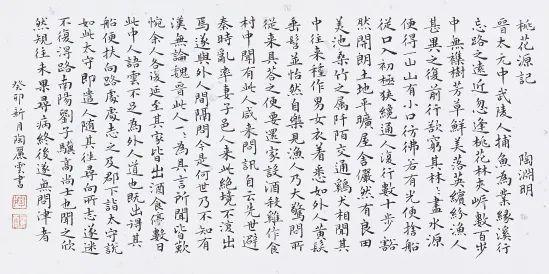 桃花源記 陶淵明
晉太元中武陵人捕魚為業緣溪行
忘路之遠近忽逢桃花林夾岍數百步
中無雜樹芳草鮮美落英繽紛漁人
甚異之復前行欲窮其林林盡水源
便得一山山有小口彷彿若有光便捨船
從口入初極狹纔通人復行數十步豁
然開朗土地平曠屋舍儼然有良田
美池桑竹之屬阡陌交通雞犬相聞其
中往來種作男女衣着悉如外人黃髮
垂髫並怡然自樂見漁人乃大驚問所
從來具答之便要還家設酒殺雞作食
村中聞有此人咸來問訊自云先世避
秦時亂率妻子邑人來此絕境不復出
焉遂與外人間隔問今是何世乃不知有
漢無論魏晉此人一一為具言所聞皆歎
惋餘人各復延至其家皆出酒食停數日
此中人語雲不足為外人道也既出得其
船便扶向路處處志之及郡下詣太守說
如此太守即遣人隨其往尋向所志遂迷
不復得路南陽劉子驥高尚士也聞之欣
然規往未果尋病終後遂無問津者
癸卯新月陶麗雲書